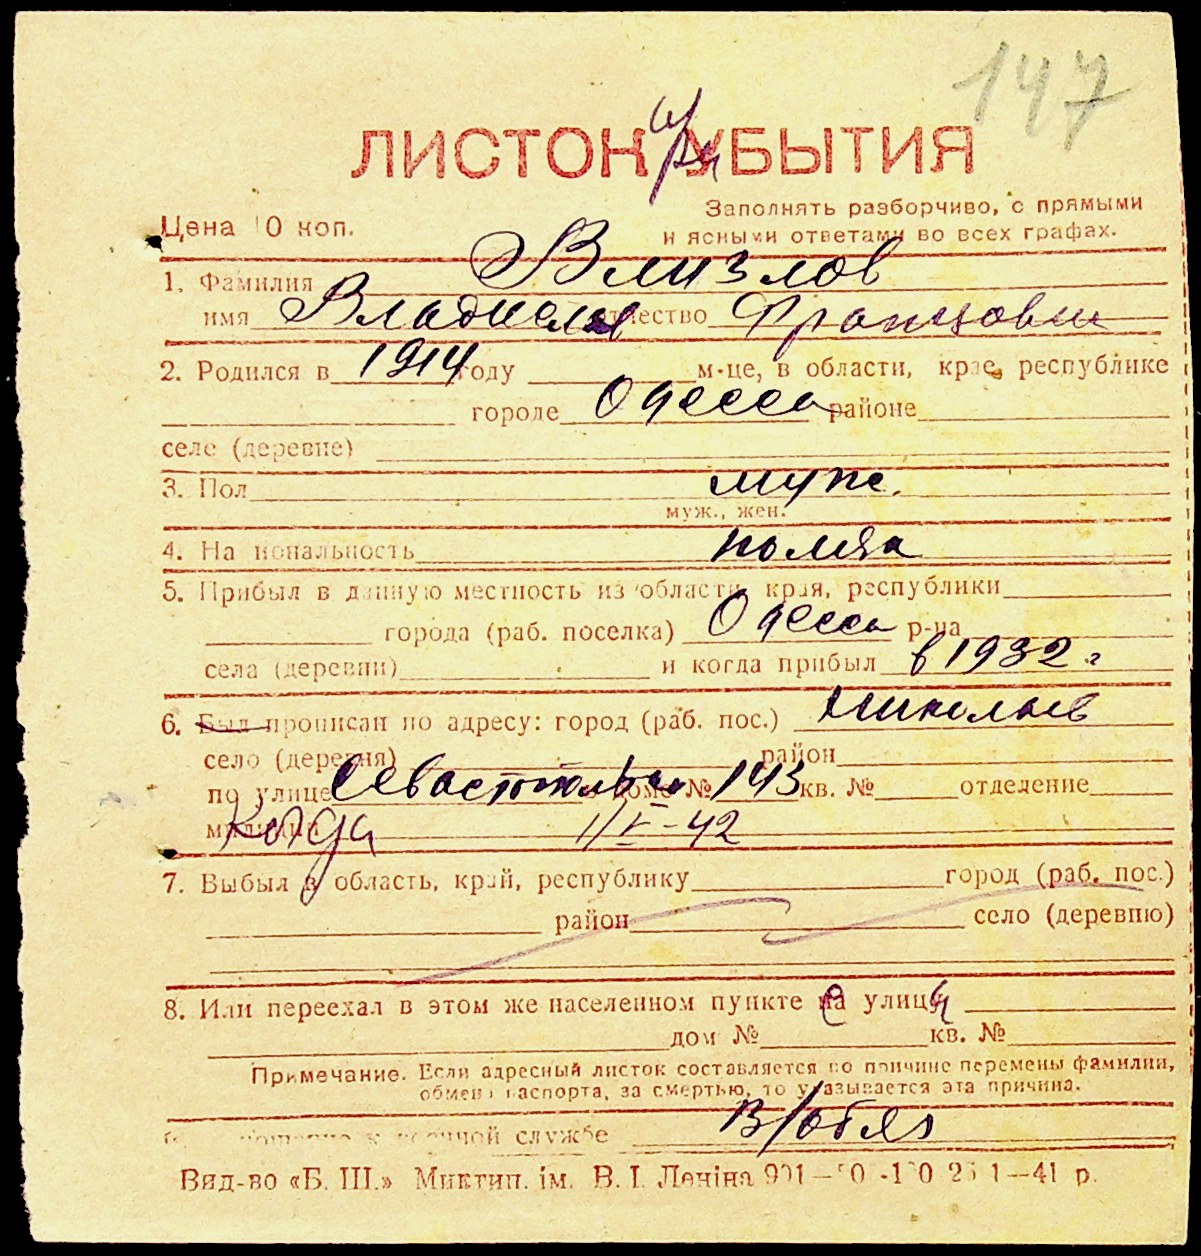 147
ЛИСТОК УБЫТИЯ
Цена 10 коп.
Заполнять разборчиво, с прямыми
и ясными ответами во всех графах.
1. Фамилия Влизлов
имя Владислав отчество Францович
2. Родился в 1914 году м-це, в области, крае, республике
городе Одесса районе
селе (деревне)
3. Пол муж.
муж., жен.
4. Национальность поляк
5. Прибыл в данную местность из области, края, республики
города (раб. поселка) Одесса р-на
села (деревни) и когда прибыл в 1932 г
6. Был прописан по адресу: город (раб. пос.) Николаев
село (деревня) район
по улице Севастопольская в доме № 143 кв. № отделение
милиции Когда 1/V-42
7. Выбыл в область, край, республику город (раб. пос.)
район село (деревню)
8. Или переехал в этом же населенном пункте на улицу
дом № кв. №
Примечание. Если адресный листок составляется по причине перемены фамилии,
обмена паспорта, за смертью, то указывается эта причина.
к военной службе в/обяз
Вид-во «Б. Ш.» Миктип. ім. В. І. Леніна 1—41 р.